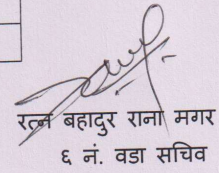 रत्न बहादुर राना मगर
६ नं. वडा सचिव